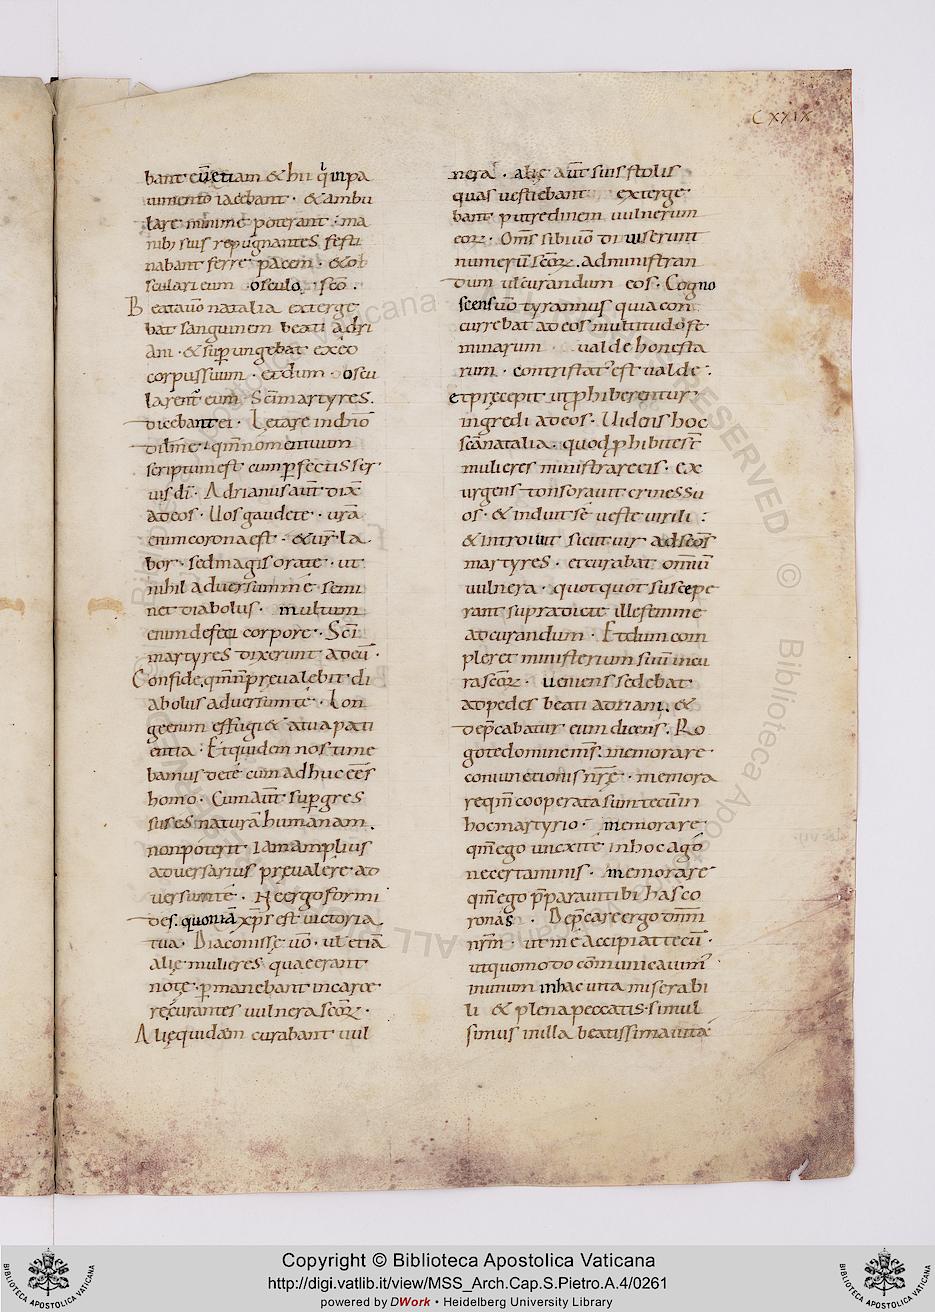 CXXIX
bant eū etiam & hii q́ in pa
uimento iacebant · & ambu
lare minime poterant · ma
nib; suis repugnantes festi
nabant ferre pacem · & ob
sculari eum osculo · sc̄o ·
Beata uō natalia exterge
bat sanguinem beati adri
ani · & sup ungebat ex eo
corpus suum · et dum oscu
larent᷑ eum · Sc̄i martyres ·
dicebant ei · Letare in dn̄o
dilc̄te · qm̄ nomen tuum
scriptum est cum pfectis ser
uis dī · Adrianus aūt dix̄
ad eos · Uos gaudete · urā
enim corona est · & ur̄ la
bor · sed magis orate · ut
nihil aduersum mé semi
net diabolus · multum
enim defeci corpore · Sc̄i
martyres dixerunt ad eū ·
Confide, qm̄ n̄ preualebit di
abolus aduersum té · Lon
ge enim effugiet a tua pati
entia · Et quidem nos time
bamus de te cum adhuc eēs
homo · Cum aūt supgres
sus es naturā humanam ·
non poterit Iam amplius
aduersarius preualere ad
uersum té · Nec ergo formi
des · quoniā xp̄s est uictoria
tua · Diaconissę uō · ul etiā
alię mulieres quae erant
notę · pmanebant in carce
re curantes uulnera sc̄oꝝ ·
Alię quidam curabant uul
nera · alię aūt suis stolis
quas uestiebant exterge
bant putredinem uulnerum
eoꝝ · Om̄s sibi uō diuiserunt
numerū sc̄oꝝ · administran
dum ul curandum eos · Cogno
scens uō tyrannus quia con
currebat ad eos multitudo fe
minarum ualde honesta
rum · contristat᷑ est ualde ·
et pręcepit ut phiberentur
ingredi ad eos · Uidens hoc
sc̄a natalia · quod phibite st̄
mulieres ministrare eis · ex
urgens tonsorauit crines su
os · & induit se ueste uirili :
& introiuit sicut uir ad sc̄os
martyres · et curabat omniū
uulnera · quotquot suscepe
rant supradicte ille femine
ad curandum · Et dum com
pleret ministerium suū in cu
ra sc̄oꝝ · ueniens sedebat
ad pedes beati adriani · &
dep̄cabatur eum dicens · Ro
go te domine m̄s · memorare
coniunctionis nr̄ę · memora
re qm̄ cooperata sum tecum in
hoc martyrio · memorare
qm̄ ego unexi te in hoc agō
ne certaminis · memorare
qm̄ ego p̄paraui tibi has co
ronas · Dep̄care ergo dn̄m
nr̄m · ut mé accipiat tecū ·
ut quomodo cōmunicauim᷑
inuicem in hac uita miserabi
li & plena peccatis · simul
simus in illa beatissima uita
Copyright © Biblioteca Apostolica Vaticana
http://digi.vatlib.it/view/MSS_Arch.Cap.S.Pietro.A.4/0261
powered by DWork • Heidelberg University Library